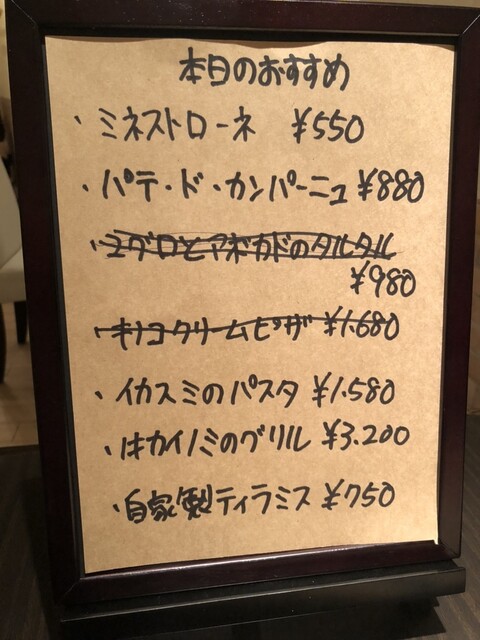 本日のおすすめ
・ミネストローネ ¥550
・パテ・ド・カンパーニュ ¥880
・マグロとアボカドのタルタル
¥980
・キノコクリームピザ ¥1.680
・イカスミのパスタ ¥1.580
・牛カイノミのグリル ¥3.200
・自家製ティラミス ¥750